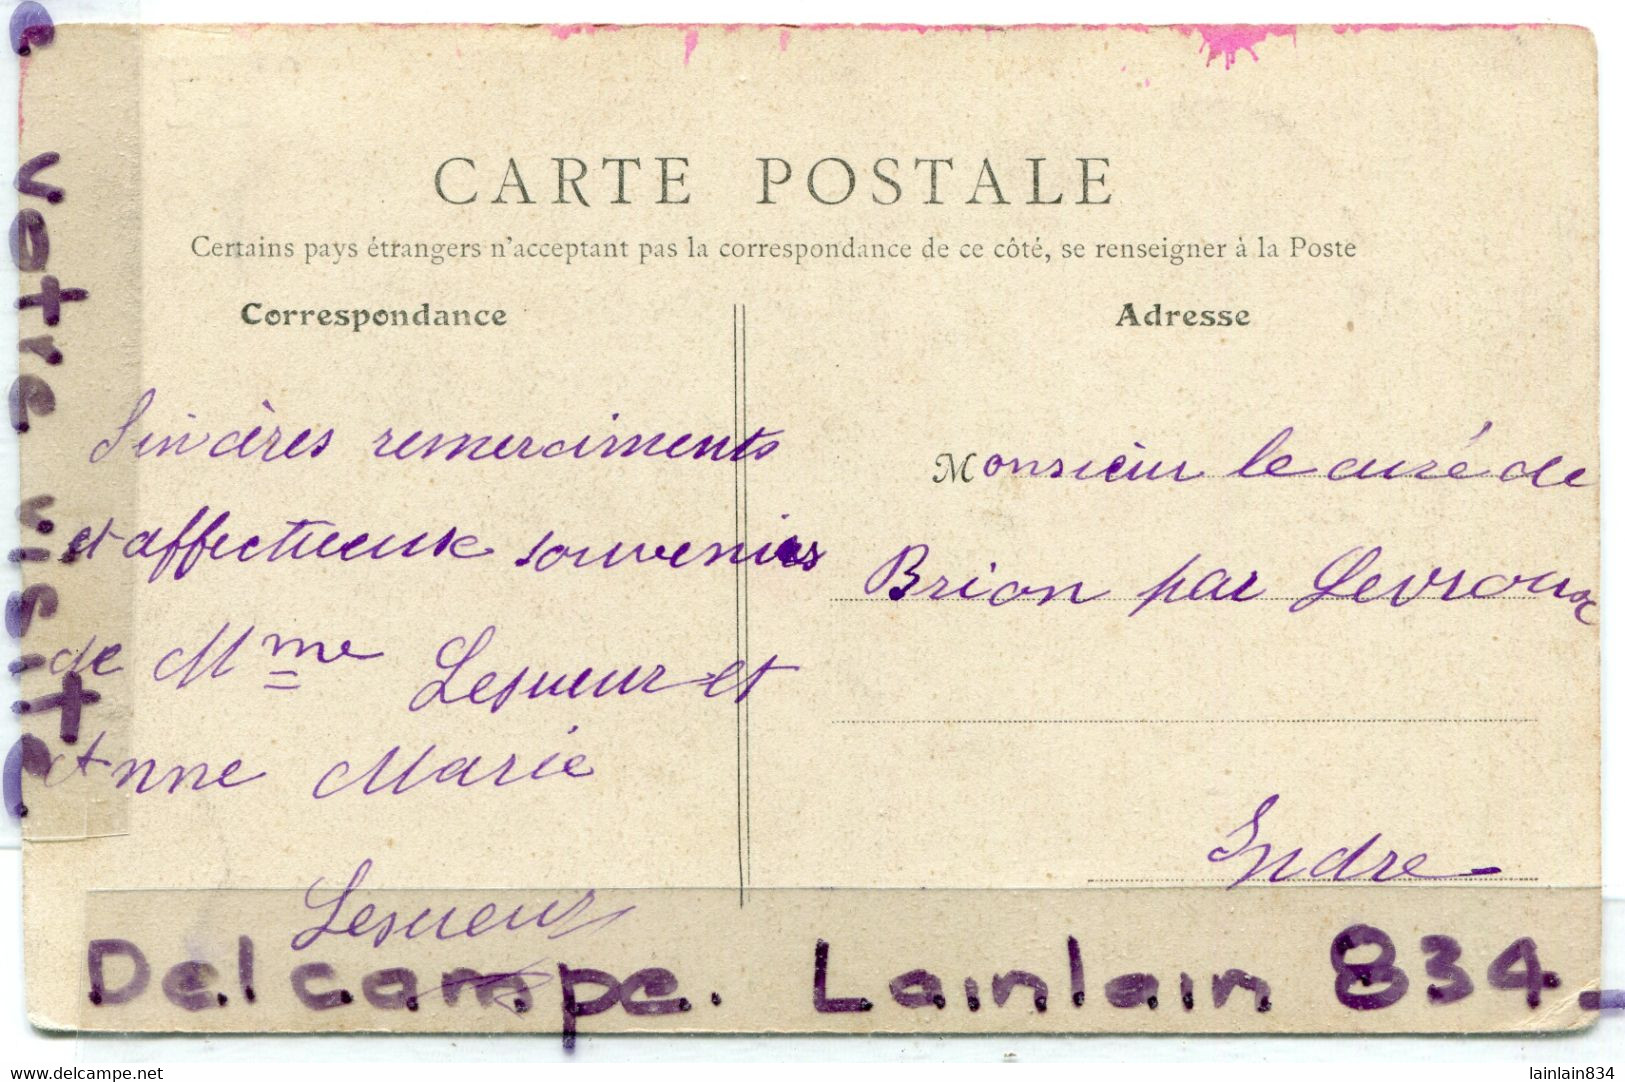 CARTE POSTALE
Certains pays étrangers n'acceptant pas la correspondance de ce côté, se renseigner à la Poste
Correspondance
Sincères remerciments
et affectueux souvenirs
de Mme Lesueur et
Anne Marie
Lesueur
Adresse
Monsieur le curé de
Brion par Levroux
Indre
votre visite
Delcampe. Lainlain 834
www.delcampe.net
lainlain834